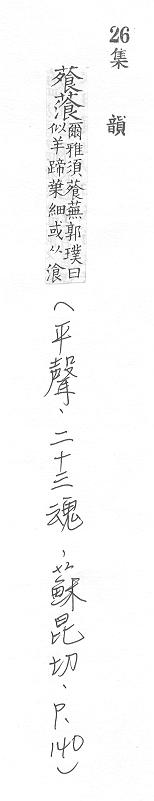 26 集韻
蕵
爾雅須蕵蕪郭璞曰
似羊蹄葉細或从飡
(平聲、二十三魂,蘇昆切、P.140)